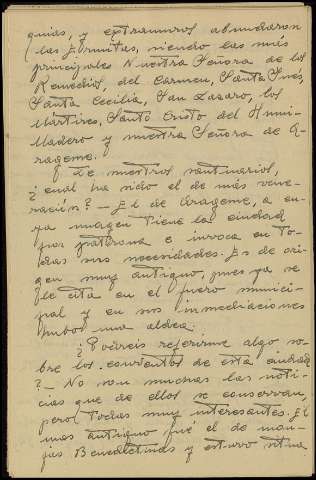 quias, y extramuros abundaron
las Ermitas, siendo las más
principales Nuestra Señora de los
Remedios, del Carmen, Santa Inés,
Santa Cecilia, San Lázaro, los
Mártires, Santo Cristo del Humi-
lladero y nuestra Señora de A-
rageme.
Y de nuestros santuarios,
¿cual ha sido el de más vene-
ración? - El de Arageme, a cu-
ya imagen tiene la ciudad
por patrona e invoca en to-
das sus necesidades. Es de ori-
gen muy antiguo, pues ya se
le cita en el fuero munici-
pal y en sus inmediaciones
hubo una aldea.
¿Podréis referirme algo so-
bre los conventos de esta ciudad
? - No son muchas las noti-
cias que de ellos se conservan,
pero todas muy interesantes. El
mas antiguo fué el de mon-
jas Benedictinas y estuvo situa